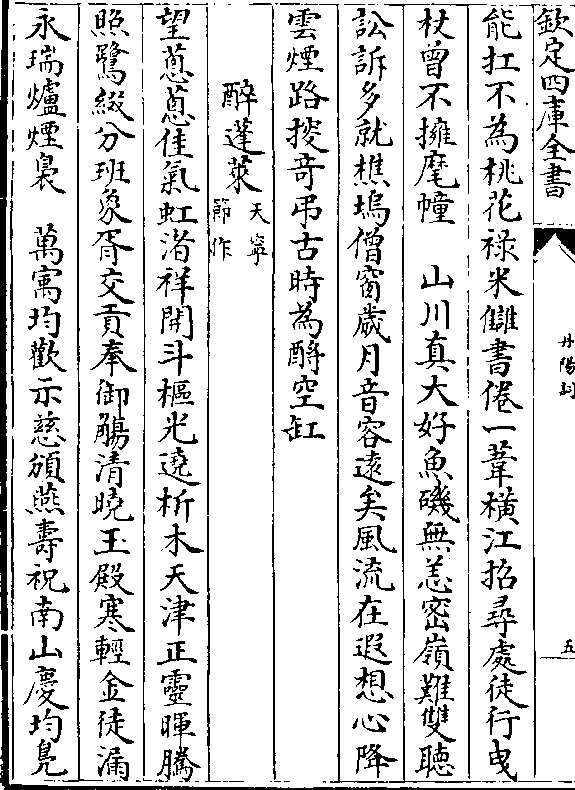 欽定四庫全書
丹陽詞
五
能扛不為桃花祿米讎書倦一葦橫江招尋處徒行曳
杖曾不擁麾幢　山川真大好魚磯無恙密嶺難雙聽
訟訴多就樵塢僧窗歲月音容遠矣風流在遐想心降
雲煙路搜奇弔古時為酹空缸
醉蓬萊天寧節作
望蔥蔥佳氣虹渚祥開斗樞光遶析木天津正靈暉騰
照鷺綴分班象胥交貢奉御觴清曉王殿寒輕金徒漏
永瑞爐煙裊　萬㝢均歡示慈頒燕壽祝南山慶均鳧